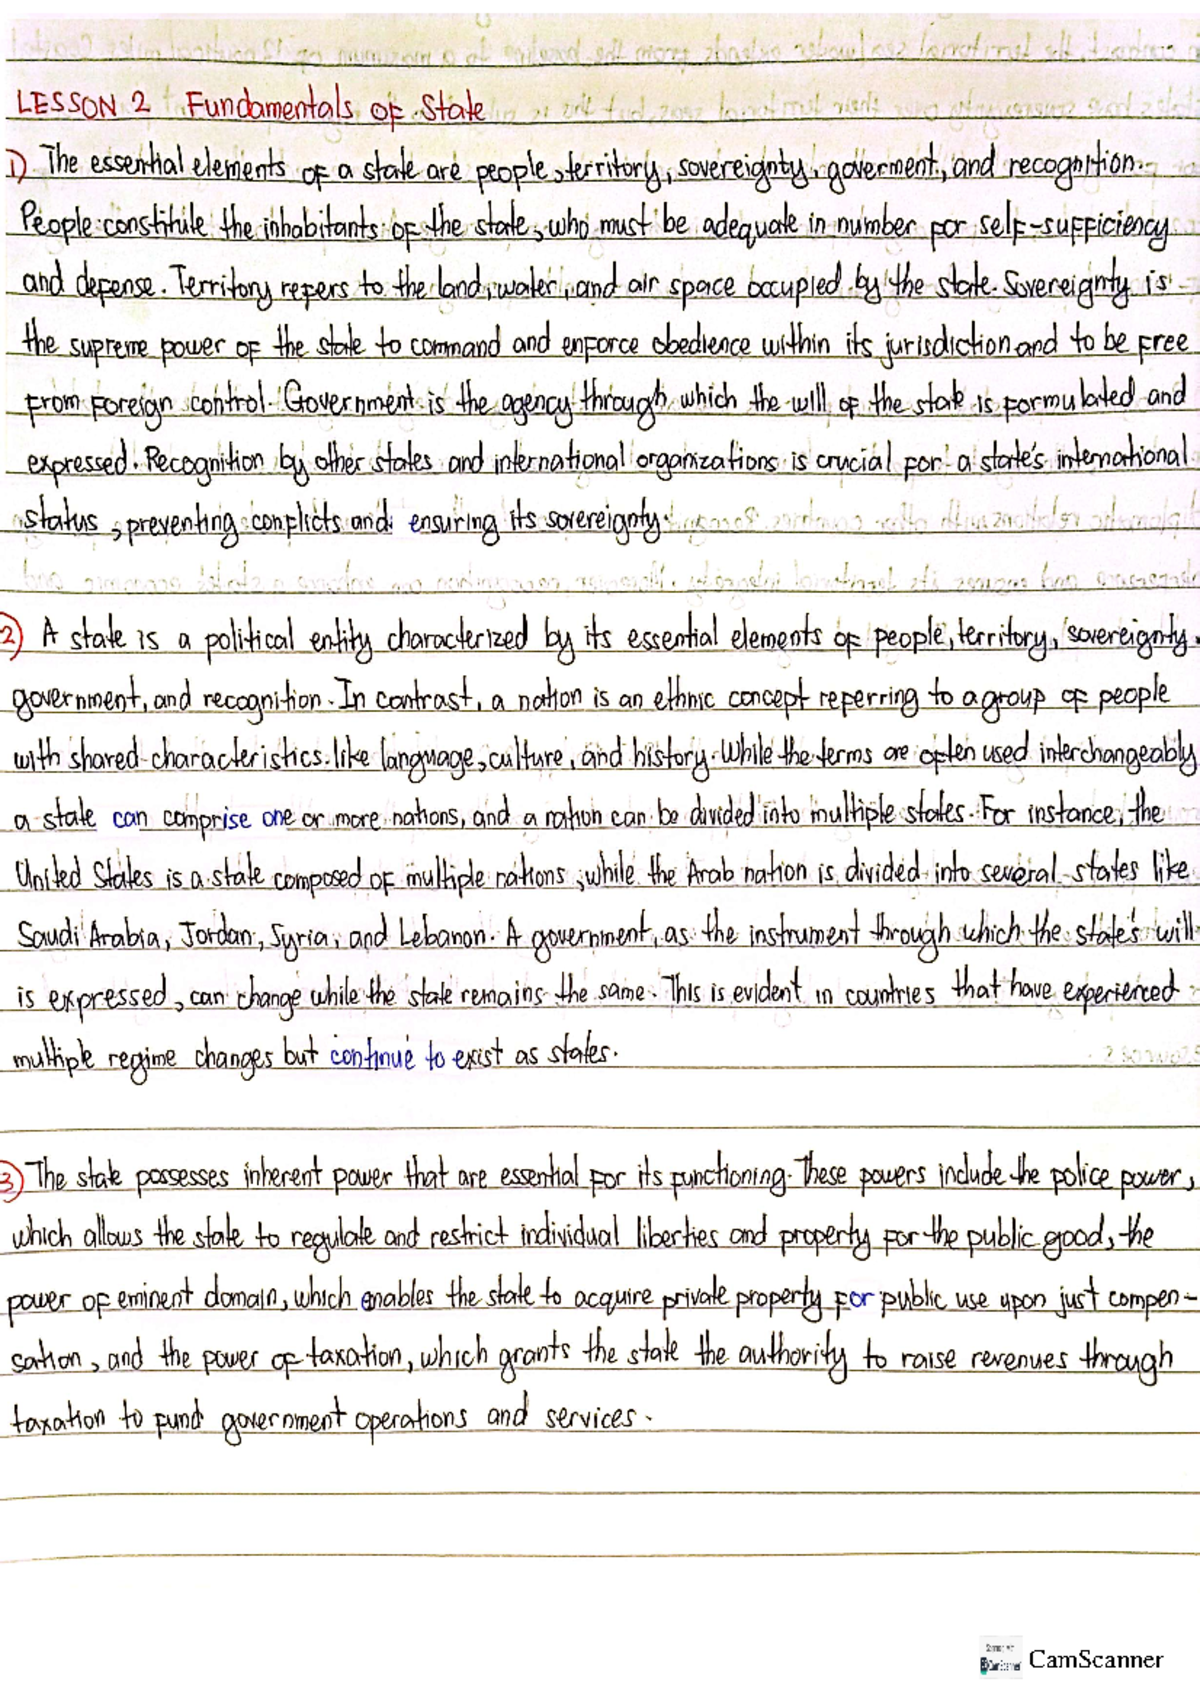 LESSON 2 Fundamentals of State
1) The essential elements of a state are people, territory, sovereignty, goverment, and recognition.
People constitute the inhabitants of the state, who must be adequate in number for self-sufficiency
and defense. Territory refers to the land, water, and air space occupied by the state. Sovereignty is
the supreme power of the state to command and enforce obedience within its jurisdiction and to be free
from foreign control. Government is the agency through which the will of the state is formulated and
expressed. Recognition by other states and international organizations is crucial for a state's international
status, preventing conflicts and ensuring its sovereignty.
2) A state is a political entity characterized by its essential elements of people, territory, sovereignty,
government, and recognition. In contrast, a nation is an ethnic concept referring to a group of people
with shared characteristics like language, culture, and history. While the terms are often used interchangeably
a state can comprise one or more nations, and a nation can be divided into multiple states. For instance, the
United States is a state composed of multiple nations, while the Arab nation is divided into several states like
Saudi Arabia, Jordan, Syria, and Lebanon. A government, as the instrument through which the state's will
is expressed, can change while the state remains the same. This is evident in countries that have experienced
multiple regime changes but continue to exist as states.
3) The state possesses inherent power that are essential for its functioning. These powers include the police power,
which allows the state to regulate and restrict individual liberties and property for the public good, the
power of eminent domain, which enables the state to acquire private property for public use upon just compen-
sation, and the power of taxation, which grants the state the authority to raise revenues through
taxation to fund government operations and services.
CamScanner